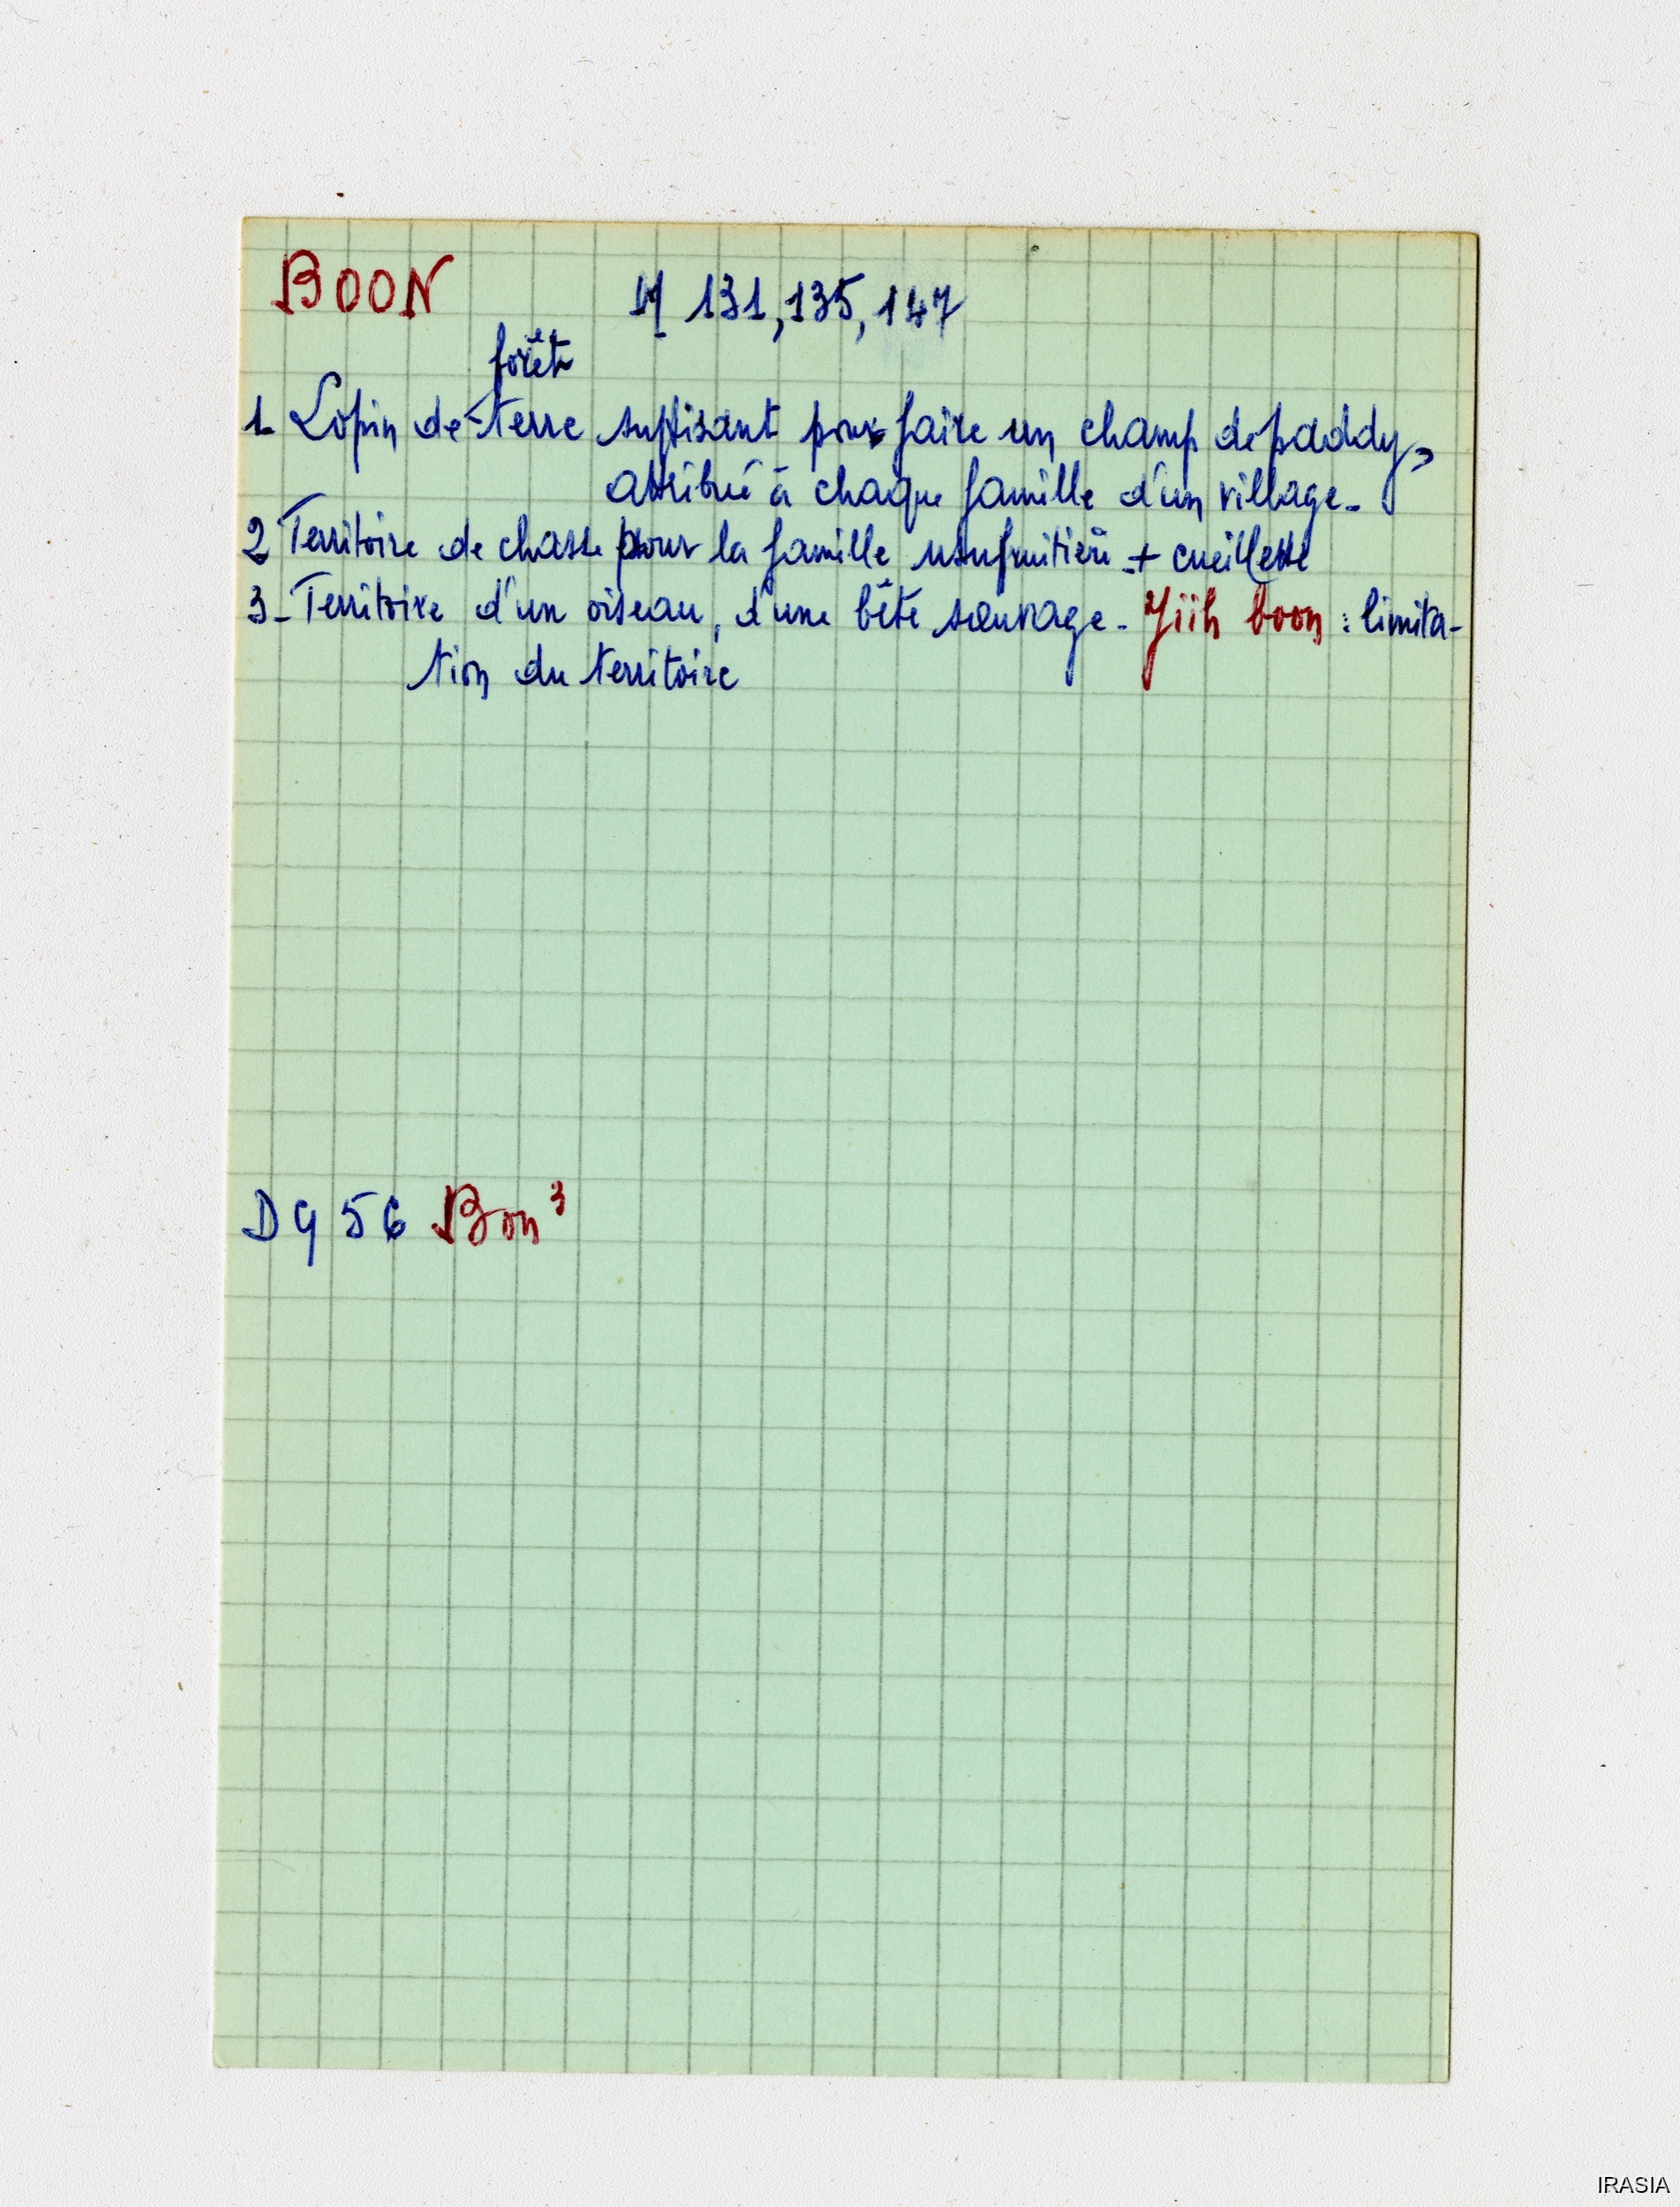 BOON M 131, 135, 147
forêt
1- Lopin de terre suffisant pour faire un champ de paddy,
attribué à chaque famille d'un village-
2 Territoire de chasse pour la famille usufruitière + cueillette
3- Territoire d'un oiseau, d'une bête sauvage- Jiih boon : limita-
tion du territoire
D 9 56 Bon³
IRASIA